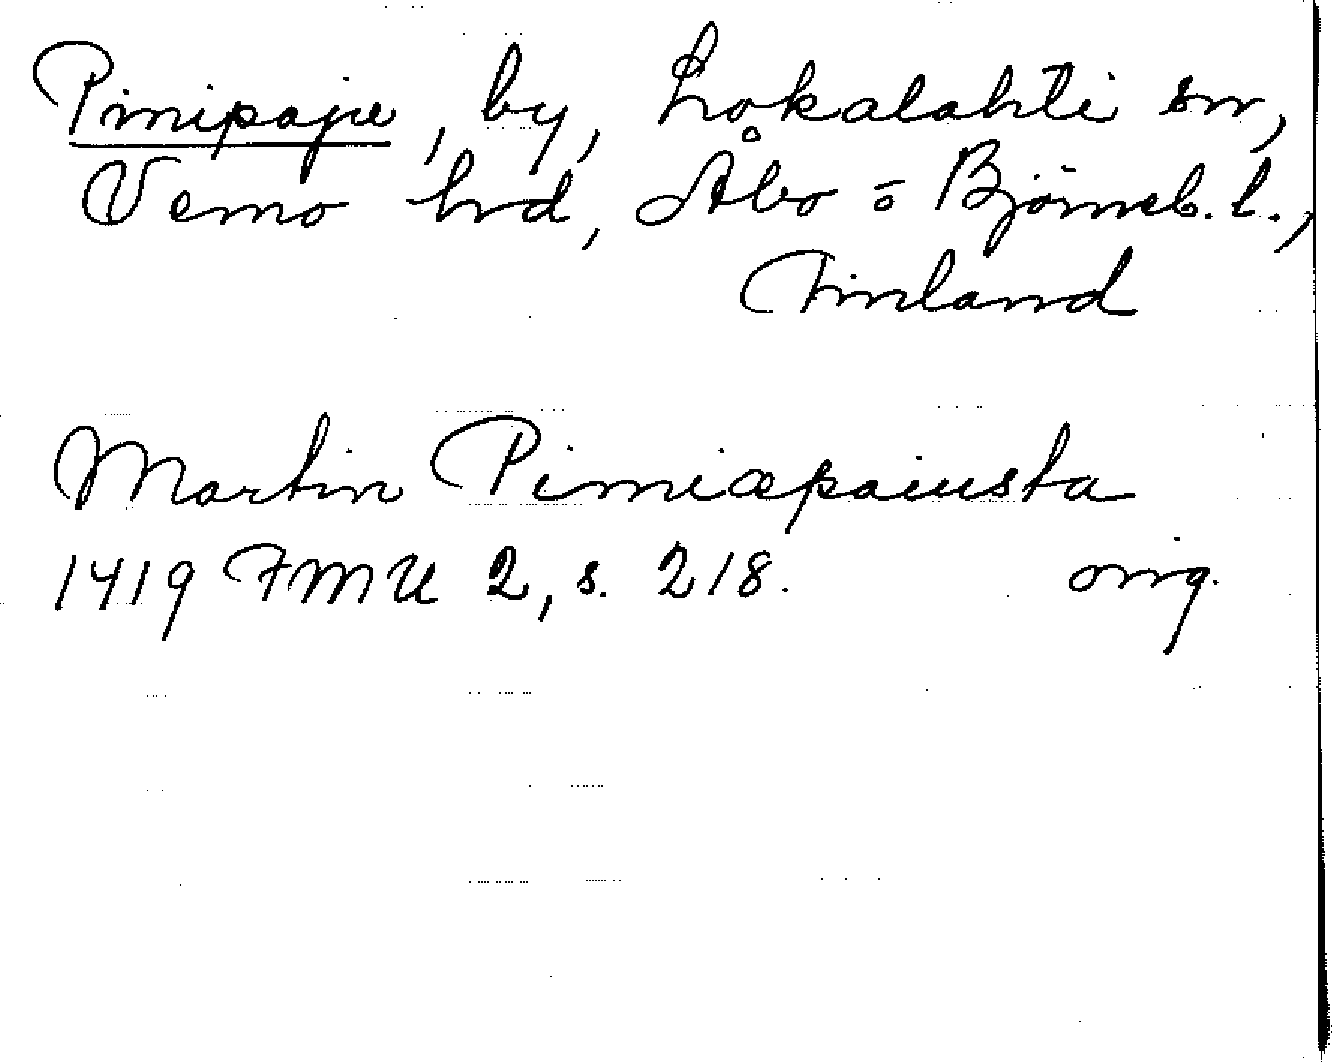 Pimipaju, by, Lokalahti sn,
Vemo hrd, Åbo o Björneb. l.,
Finland
Martin Pimiæpaiusta
1419 FMU 2, s. 218. orig.